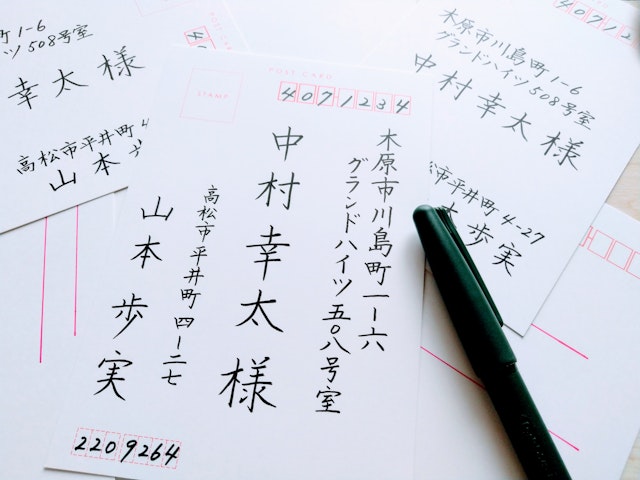 町1-6
ツ508号室
幸太様
高松市平井町4
山本
POST CARD
STAMP
4071234
木原市川島町一-六
グランドハイツ五〇八号室
中村幸太様
高松市平井町四-二七
山本歩実
2209264
40712
木原市川島町1-6
グランドハイツ508号室
中村幸太様
市平井町4-27
本歩実